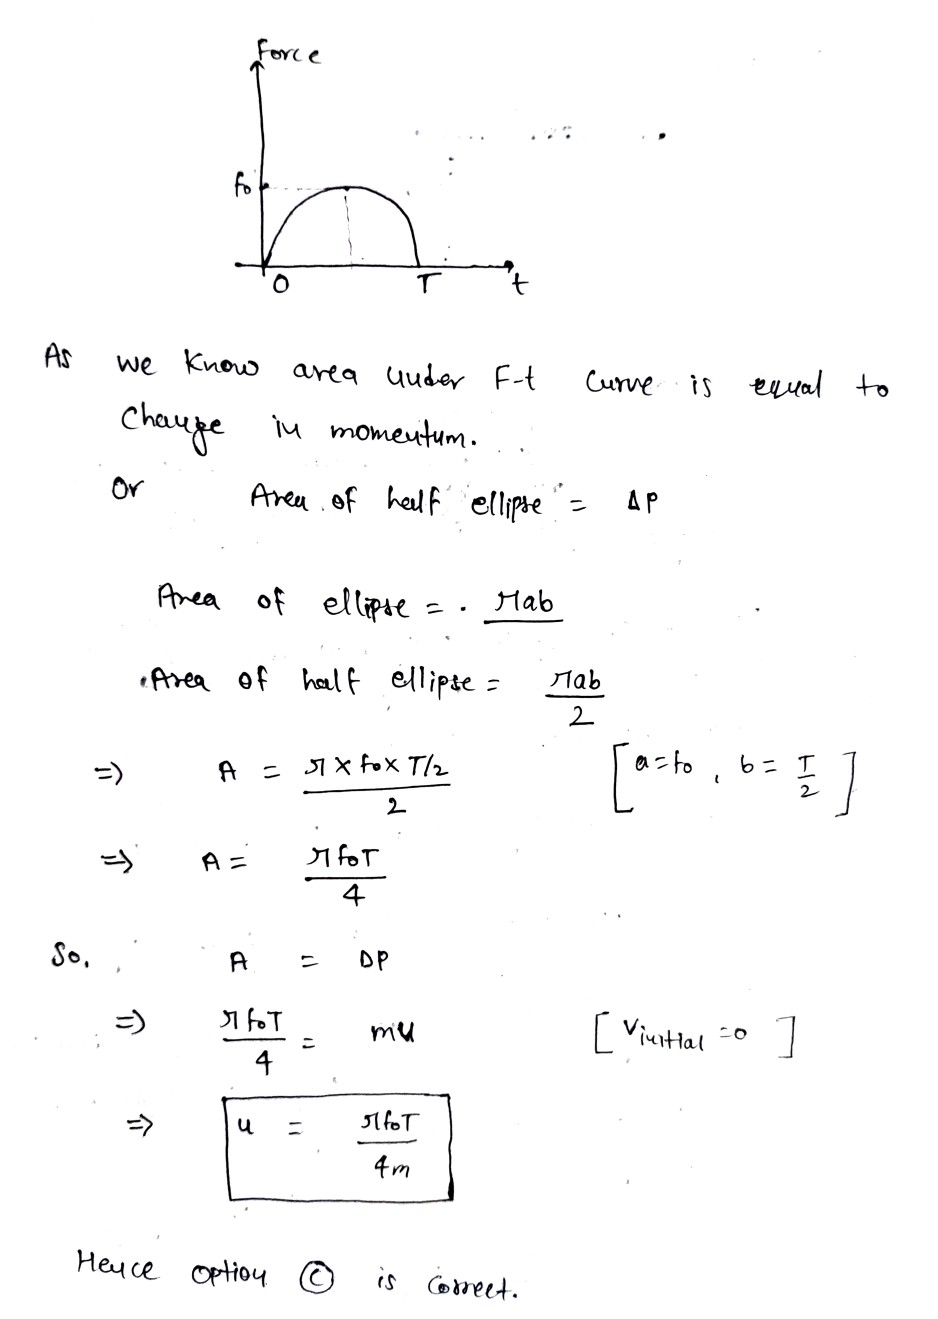 Force
fo
O T t
As we know area under F-t curve is equal to
change in momentum.
Or Area of half ellipse = ΔP
Area of ellipse = πab
Area of half ellipse = πab/2
=> A = π × fo × T/2 / 2 [a = fo, b = T/2]
=> A = π foT/4
So, A = ΔP
=> π foT/4 = mu [Vinitial = 0]
=> u = π foT/4m
Hence option ⓒ is correct.